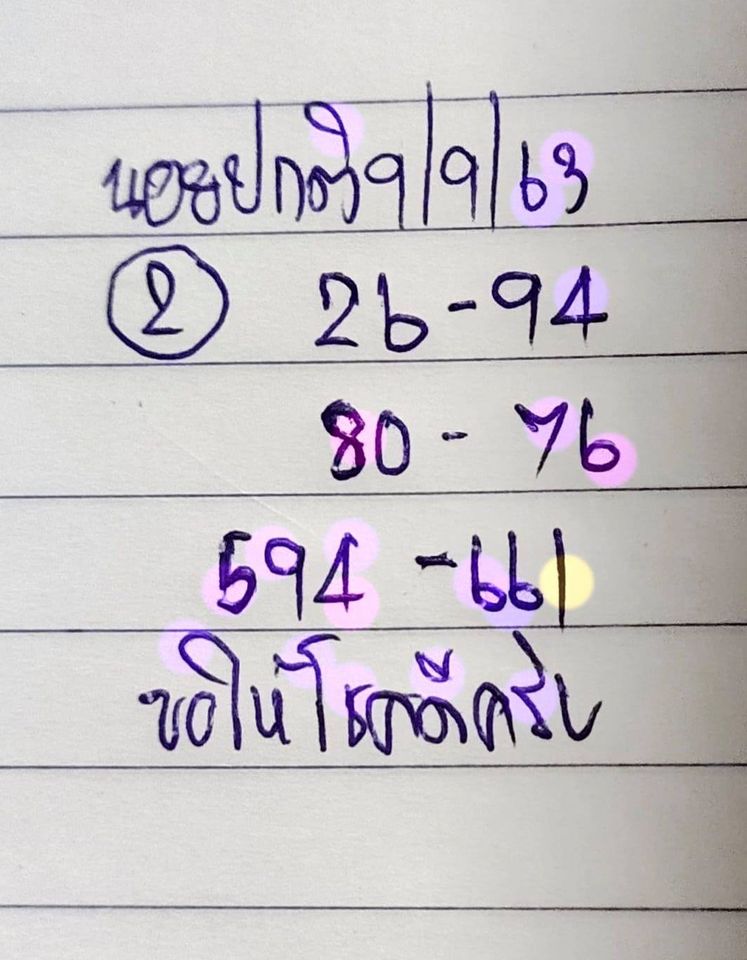 นอยปกติ 9/9/63
2 26-94
80-76
594-661
ขอให้โชคดีครับ